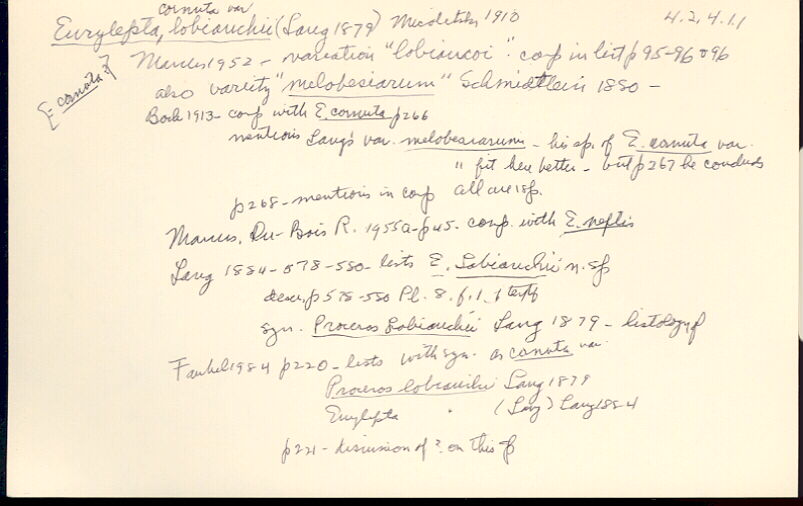 cornuta var
Eurylepta, lobianchii (Lang 1879) Micoletzky 1910 4.2.4.1.1
[= cornuta?]
Marcus 1952 - variation "lobiancoi". comp in list p95-96 & 96
also variety "melobesiarum" Schmidtlein 1880 -
Bock 1913 - comp with E. cornuta p266
mentions Lang's var. melobesiarum - his sp. of E. cornuta var.
" fit here better - but p267 he concluds
p268 - mentions in comp all are 1 sp.
Marcus, Du-Bois R. 1955a - p45. comp. with E. neptis
Lang 1884 - 578-580 - lists E. Lobianchii n. sp
descr. p578-580 Pl. 8. f. 1. & text f
syn. Proceros Lobianchii Lang 1879 - histology p
Faubel 1984 p220 - lists with syn. as cornuta var.
Proceros lobianchii Lang 1879
Eurylepta " (Lang) Lang 1884
p221 - discussion of ? on this sp